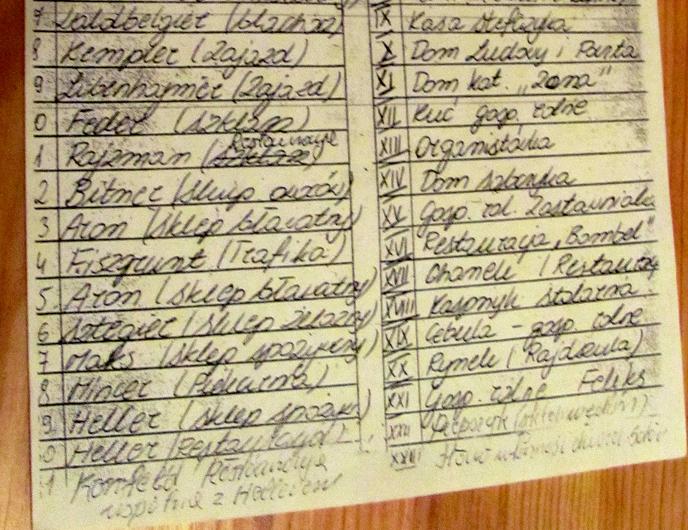 7 Goldbelgier (blacharz)
8 Kempler (Zajazd)
9 Libenhajmer (Zajazd)
0 Feder (szklarz)
1 Rajzman Restauracje
2 Bitner (sklep owoców)
3 Aron (sklep bławatny)
4 Fiszgrunt (Trafika)
5 Aron (sklep bławatny)
6 Sztegier (sklep żelazny)
7 Maks (sklep spożywczy)
8 Mincer (Piekarnia)
9 Heller (sklep spożyw)
0 Heller (restauracja)
1 Kornfeld Restauracje
wspólnie z Hellerem
IX Kasa Stefczyka
X Dom Ludowy i Poczta
XI Dom kat. "Zorza"
XII Ruć gosp. rolne
XIII Organistówka
XIV Dom
XV gosp. rol. Zastawniaka
XVI Restauracja "Bombel"
XVII (Restauracja
XVIII stolarnia
XIX Cebula - gosp. rolne
XX Rymek (Rajdowa)
XXI gosp. rolne Feliks
XXII
XXIII